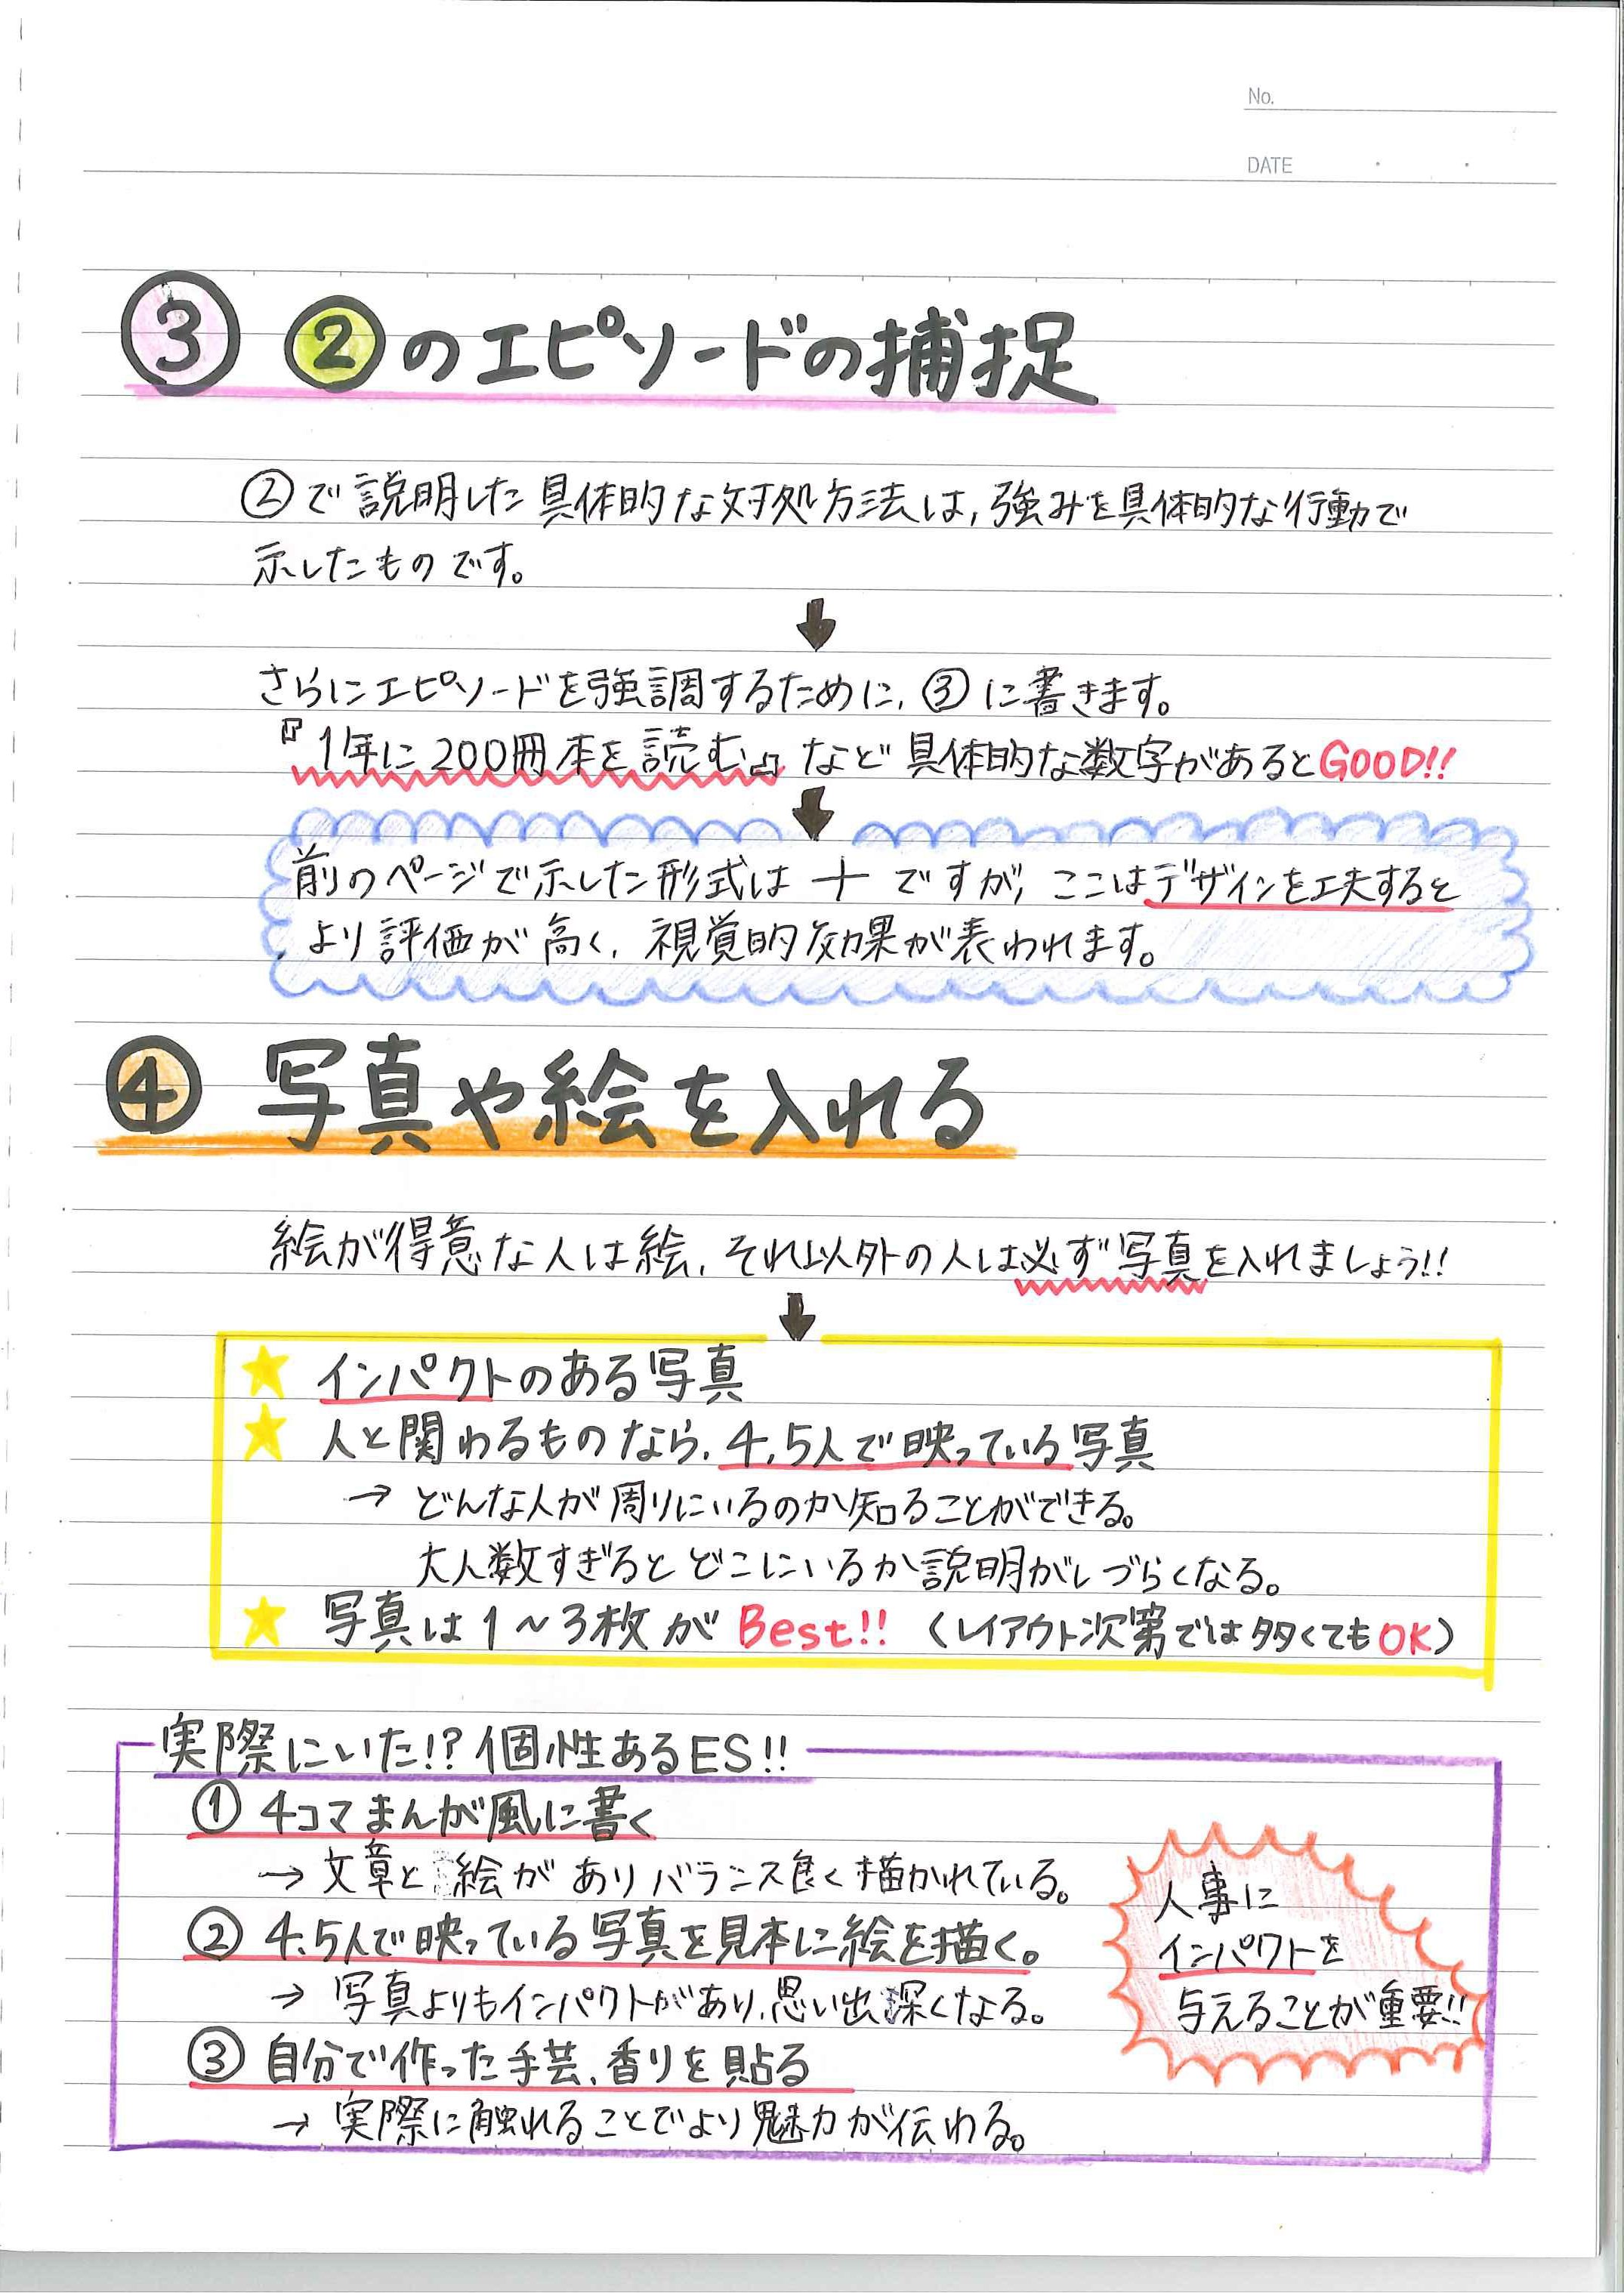 No.
DATE
③ ②のエピソードの捕捉
②で説明した具体的な対処方法は,強みを具体的な行動で
示したものです。
さらにエピソードを強調するために,③に書きます。
『1年に200冊本を読む』など具体的な数字があるとGOOD!!
前のページで示した形式は十ですが,ここはデザインを工夫すると
より評価が高く,視覚的効果が表われます。
④ 写真や絵を入れる
絵が得意な人は絵,それ以外の人は必ず写真を入れましょう!!
★ インパクトのある写真
★ 人と関わるものなら,4,5人で映っている写真
→ どんな人が周りにいるのか知ることができる。
大人数すぎるとどこにいるか説明がしづらくなる。
★ 写真は1~3枚がBest!! (レイアウト次第では多くてもOK)
実際にいた!?個性あるES!!
① 4コマまんが風に書く
→ 文章と絵がありバランス良く描かれている。
② 4,5人で映っている写真を見本に絵を描く。
→ 写真よりもインパクトがあり,思い出深くなる。
③ 自分で作った手芸,香りを貼る
→ 実際に触れることでより魅力が伝わる。
人事に
インパクトを
与えることが重要!!